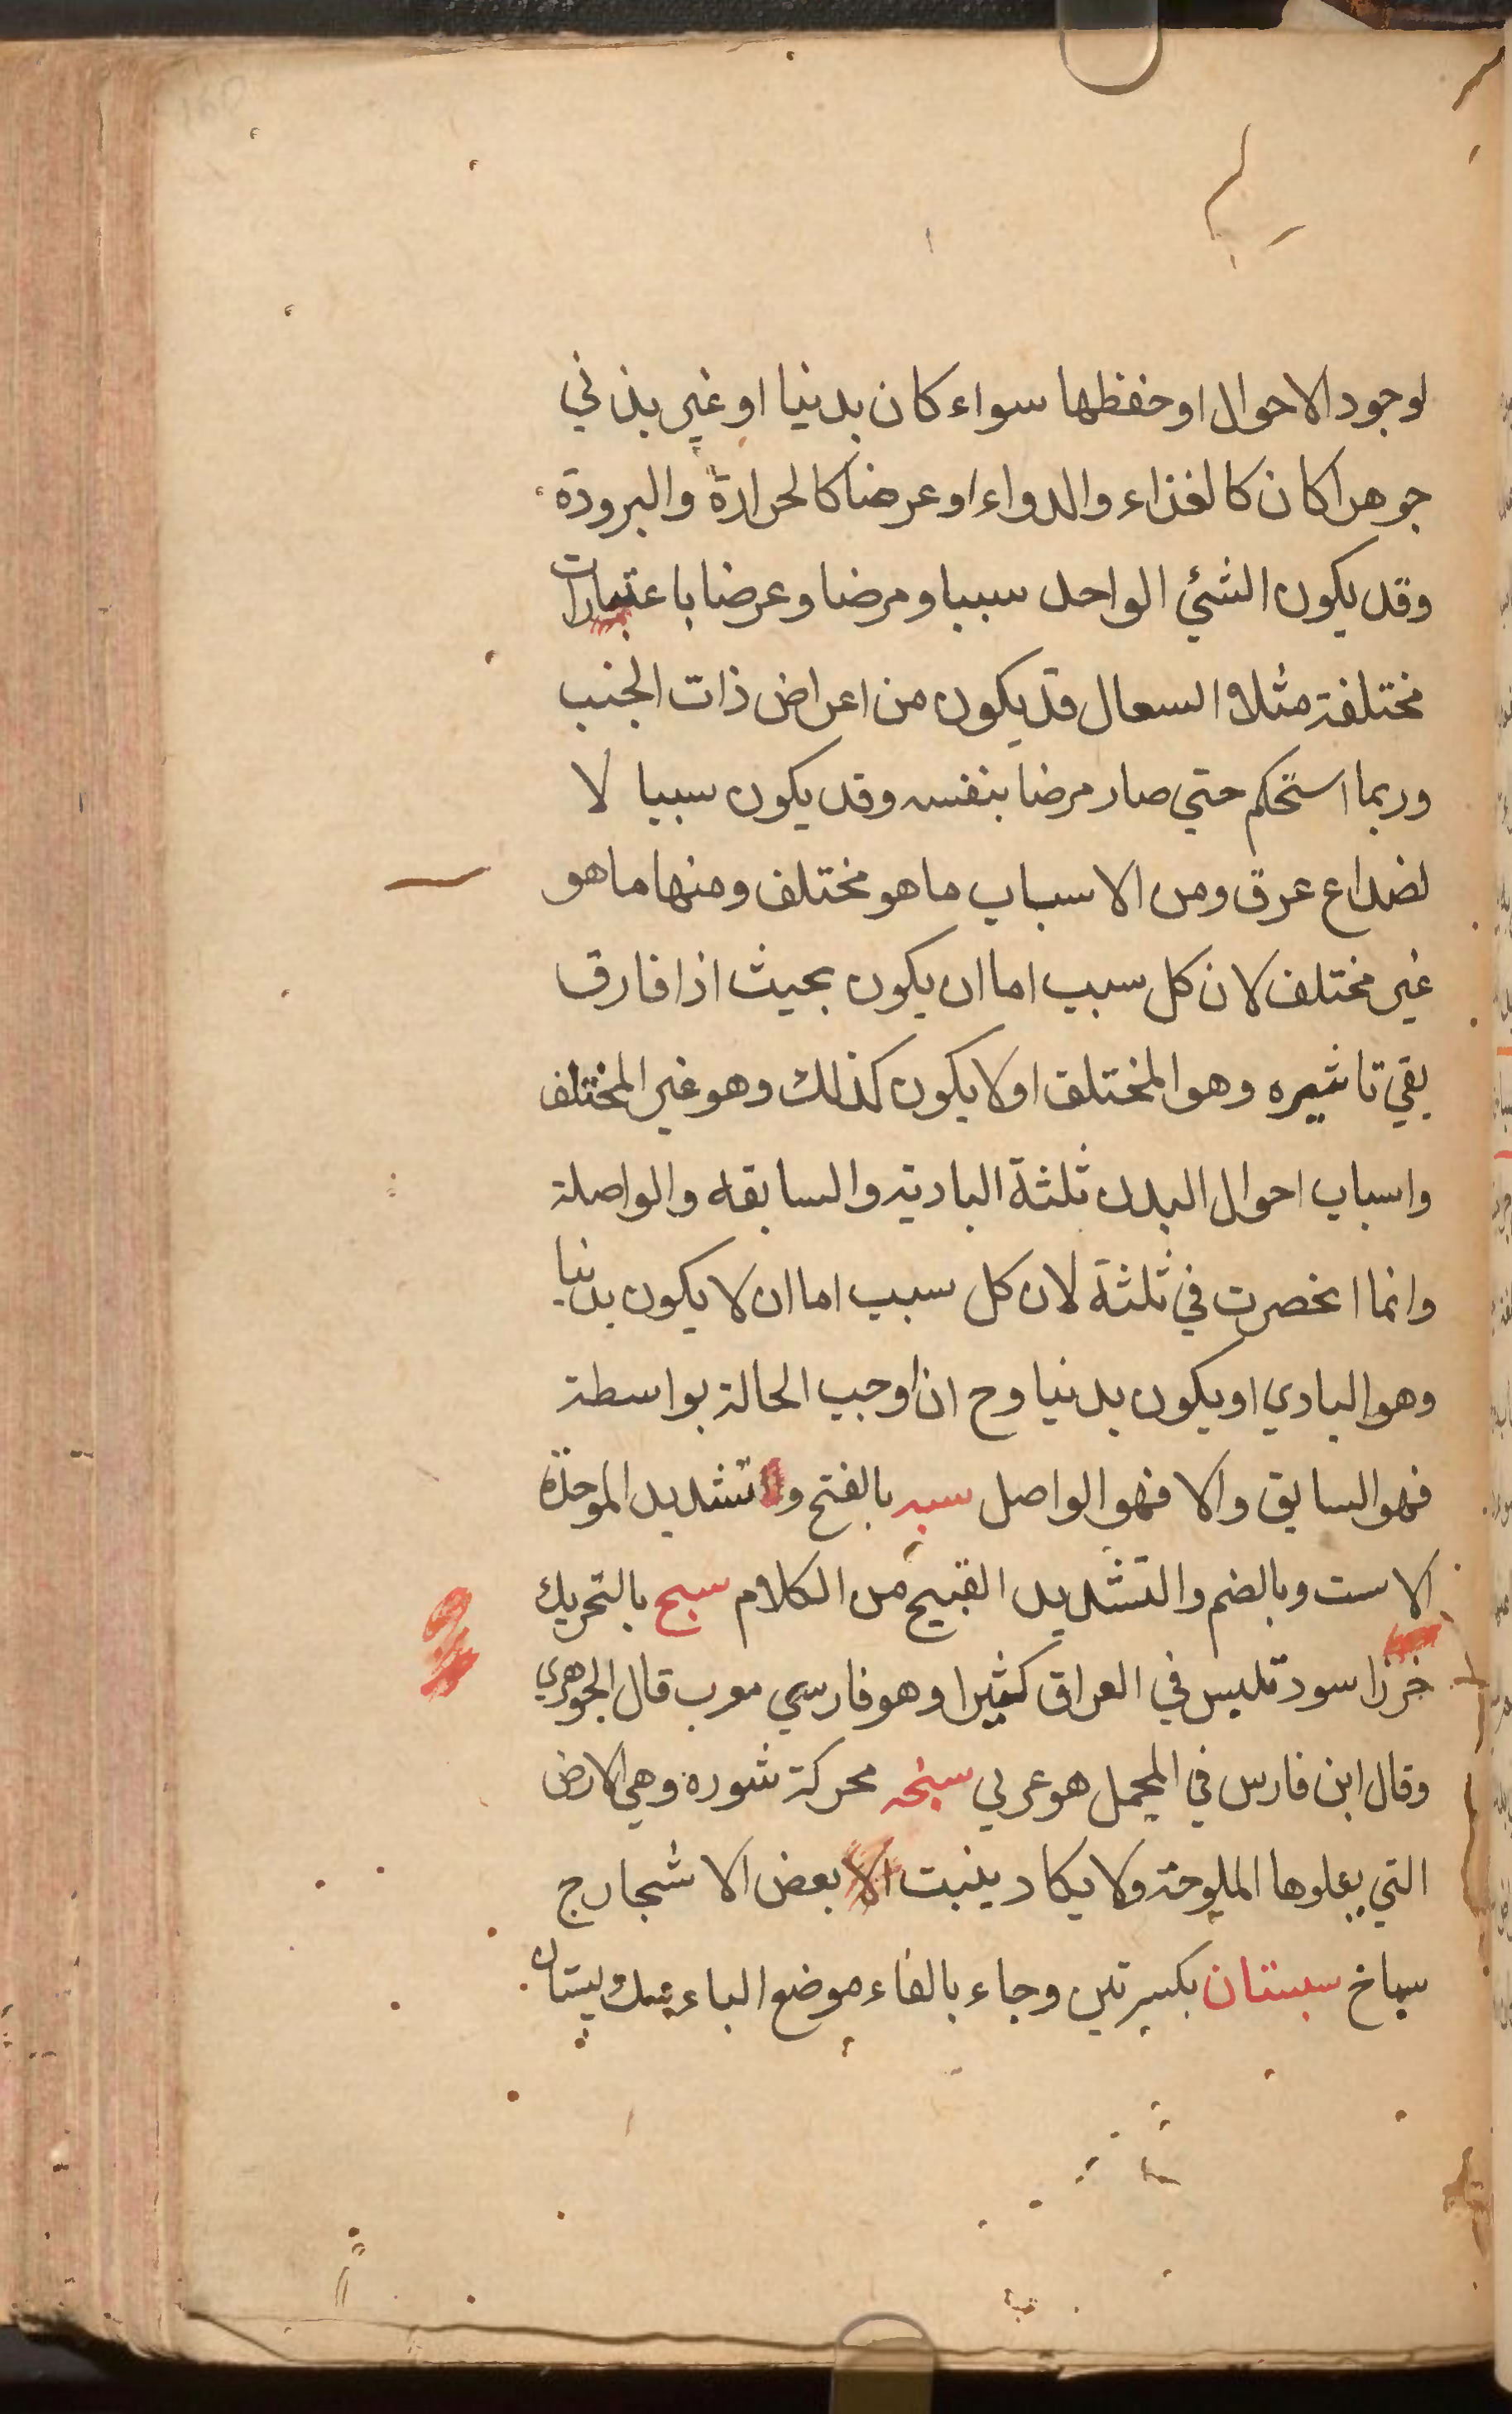 لوجود الاحوال او حفظها سواء كان بدنيا او غير بدني
جوهرا كان كالغذاء والدواء او عرضا كالحرارة والبرودة
وقد يكون الشئ الواحد سببا ومرضا وعرضا باعتبارات
مختلفة مثلا السعال قد يكون من اعراض ذات الجنب
وربما استحكم حتي صار مرضا بنفسه وقد يكون سببا لا
لضداع عرق ومن الاسباب ما هو مختلف ومنها ما هو
غير مختلف لان كل سبب اما ان يكون بحيث اذا فارق
بقي تاثيره وهو المختلف او لا يكون كذلك وهو غير المختلف
واسباب احوال البدن ثلثة البادية والسابقه والواصلة
وانما انحصرت في ثلثة لان كل سبب اما ان لا يكون بدنيا
وهو البادي او يكون بدنيا وح ان اوجب الحالة بواسطة
فهو السابق والا فهو الواصل سبه بالفتح وتشديد الموحدة
الاست وبالضم والتشديد القبيح من الكلام سبح بالتحريك
خرز اسود تلبس في العراق كثيرا وهو فارسي معرب قال الجوهري
وقال ابن فارس في المجمل هو عربي سبخه محركة شوره وهي الارض
التي يعلوها الملوحة ولا يكاد ينبت الا بعض الاشجار ج
سباخ سبستان بكسرتين وجاء بالفاء موضع الباء